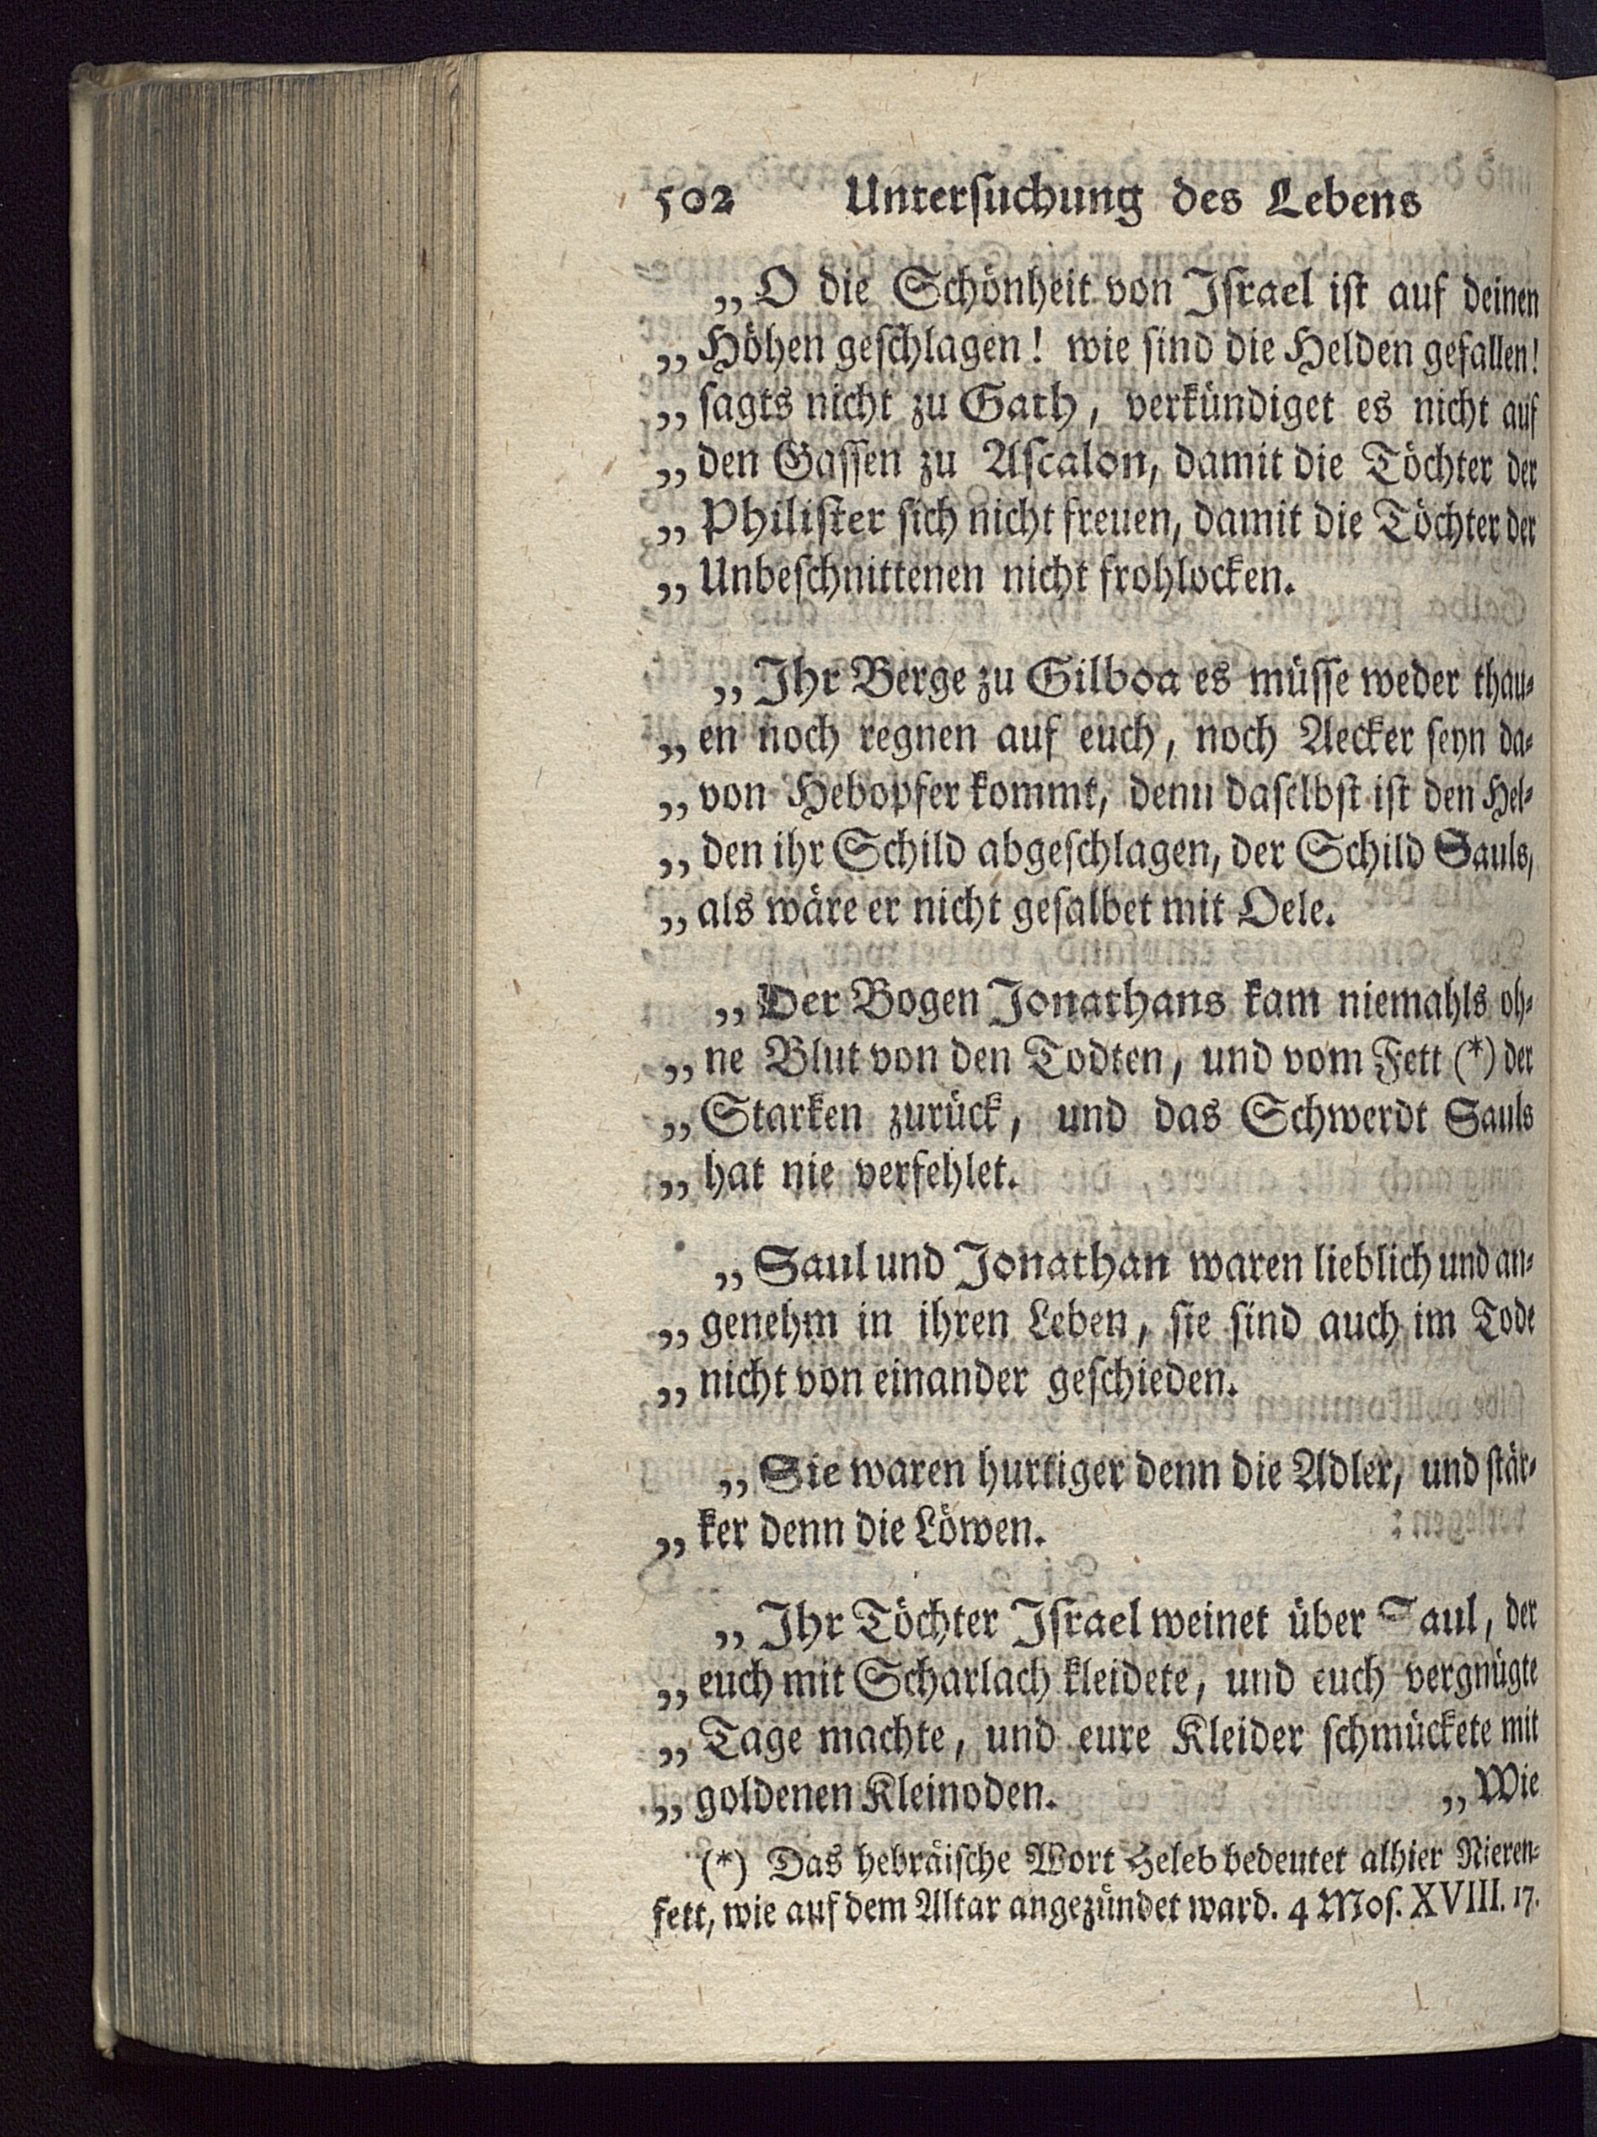 502 Untersuchung des Lebens
„O die Schönheit von Israel ist auf deinen
„Höhen geschlagen! wie sind die Helden gefallen!
„sagts nicht zu Gath, verkündiget es nicht auf
„den Gassen zu Ascalon, damit die Töchter der
„Philister sich nicht freuen, damit die Töchter der
„Unbeschnittenen nicht frohlocken.
„Ihr Berge zu Gilboa es müsse weder thau-
„en noch regnen auf euch, noch Aecker seyn da-
„von Hebopfer kommt, denn daselbst ist den Hel-
„den ihr Schild abgeschlagen, der Schild Sauls,
„als wäre er nicht gesalbet mit Oele.
„Der Bogen Jonathans kam niemahls oh-
„ne Blut von den Todten, und vom Fett (*) der
„Starken zurück, und das Schwerdt Sauls
„hat nie verfehlet.
„Saul und Jonathan waren lieblich und an-
„genehm in ihren Leben, sie sind auch im Tode
„nicht von einander geschieden.
„Sie waren hurtiger denn die Adler, und stär-
„ker denn die Löwen.
„Ihr Töchter Israel weinet über Saul, der
„euch mit Scharlach kleidete, und euch vergnügte
„Tage machte, und eure Kleider schmückete mit
„goldenen Kleinoden. „Wie
(*) Das hebräische Wort Heleb bedeutet alhier Nieren-
fett, wie auf dem Altar angezündet ward. 4 Mos. XVIII. 17.